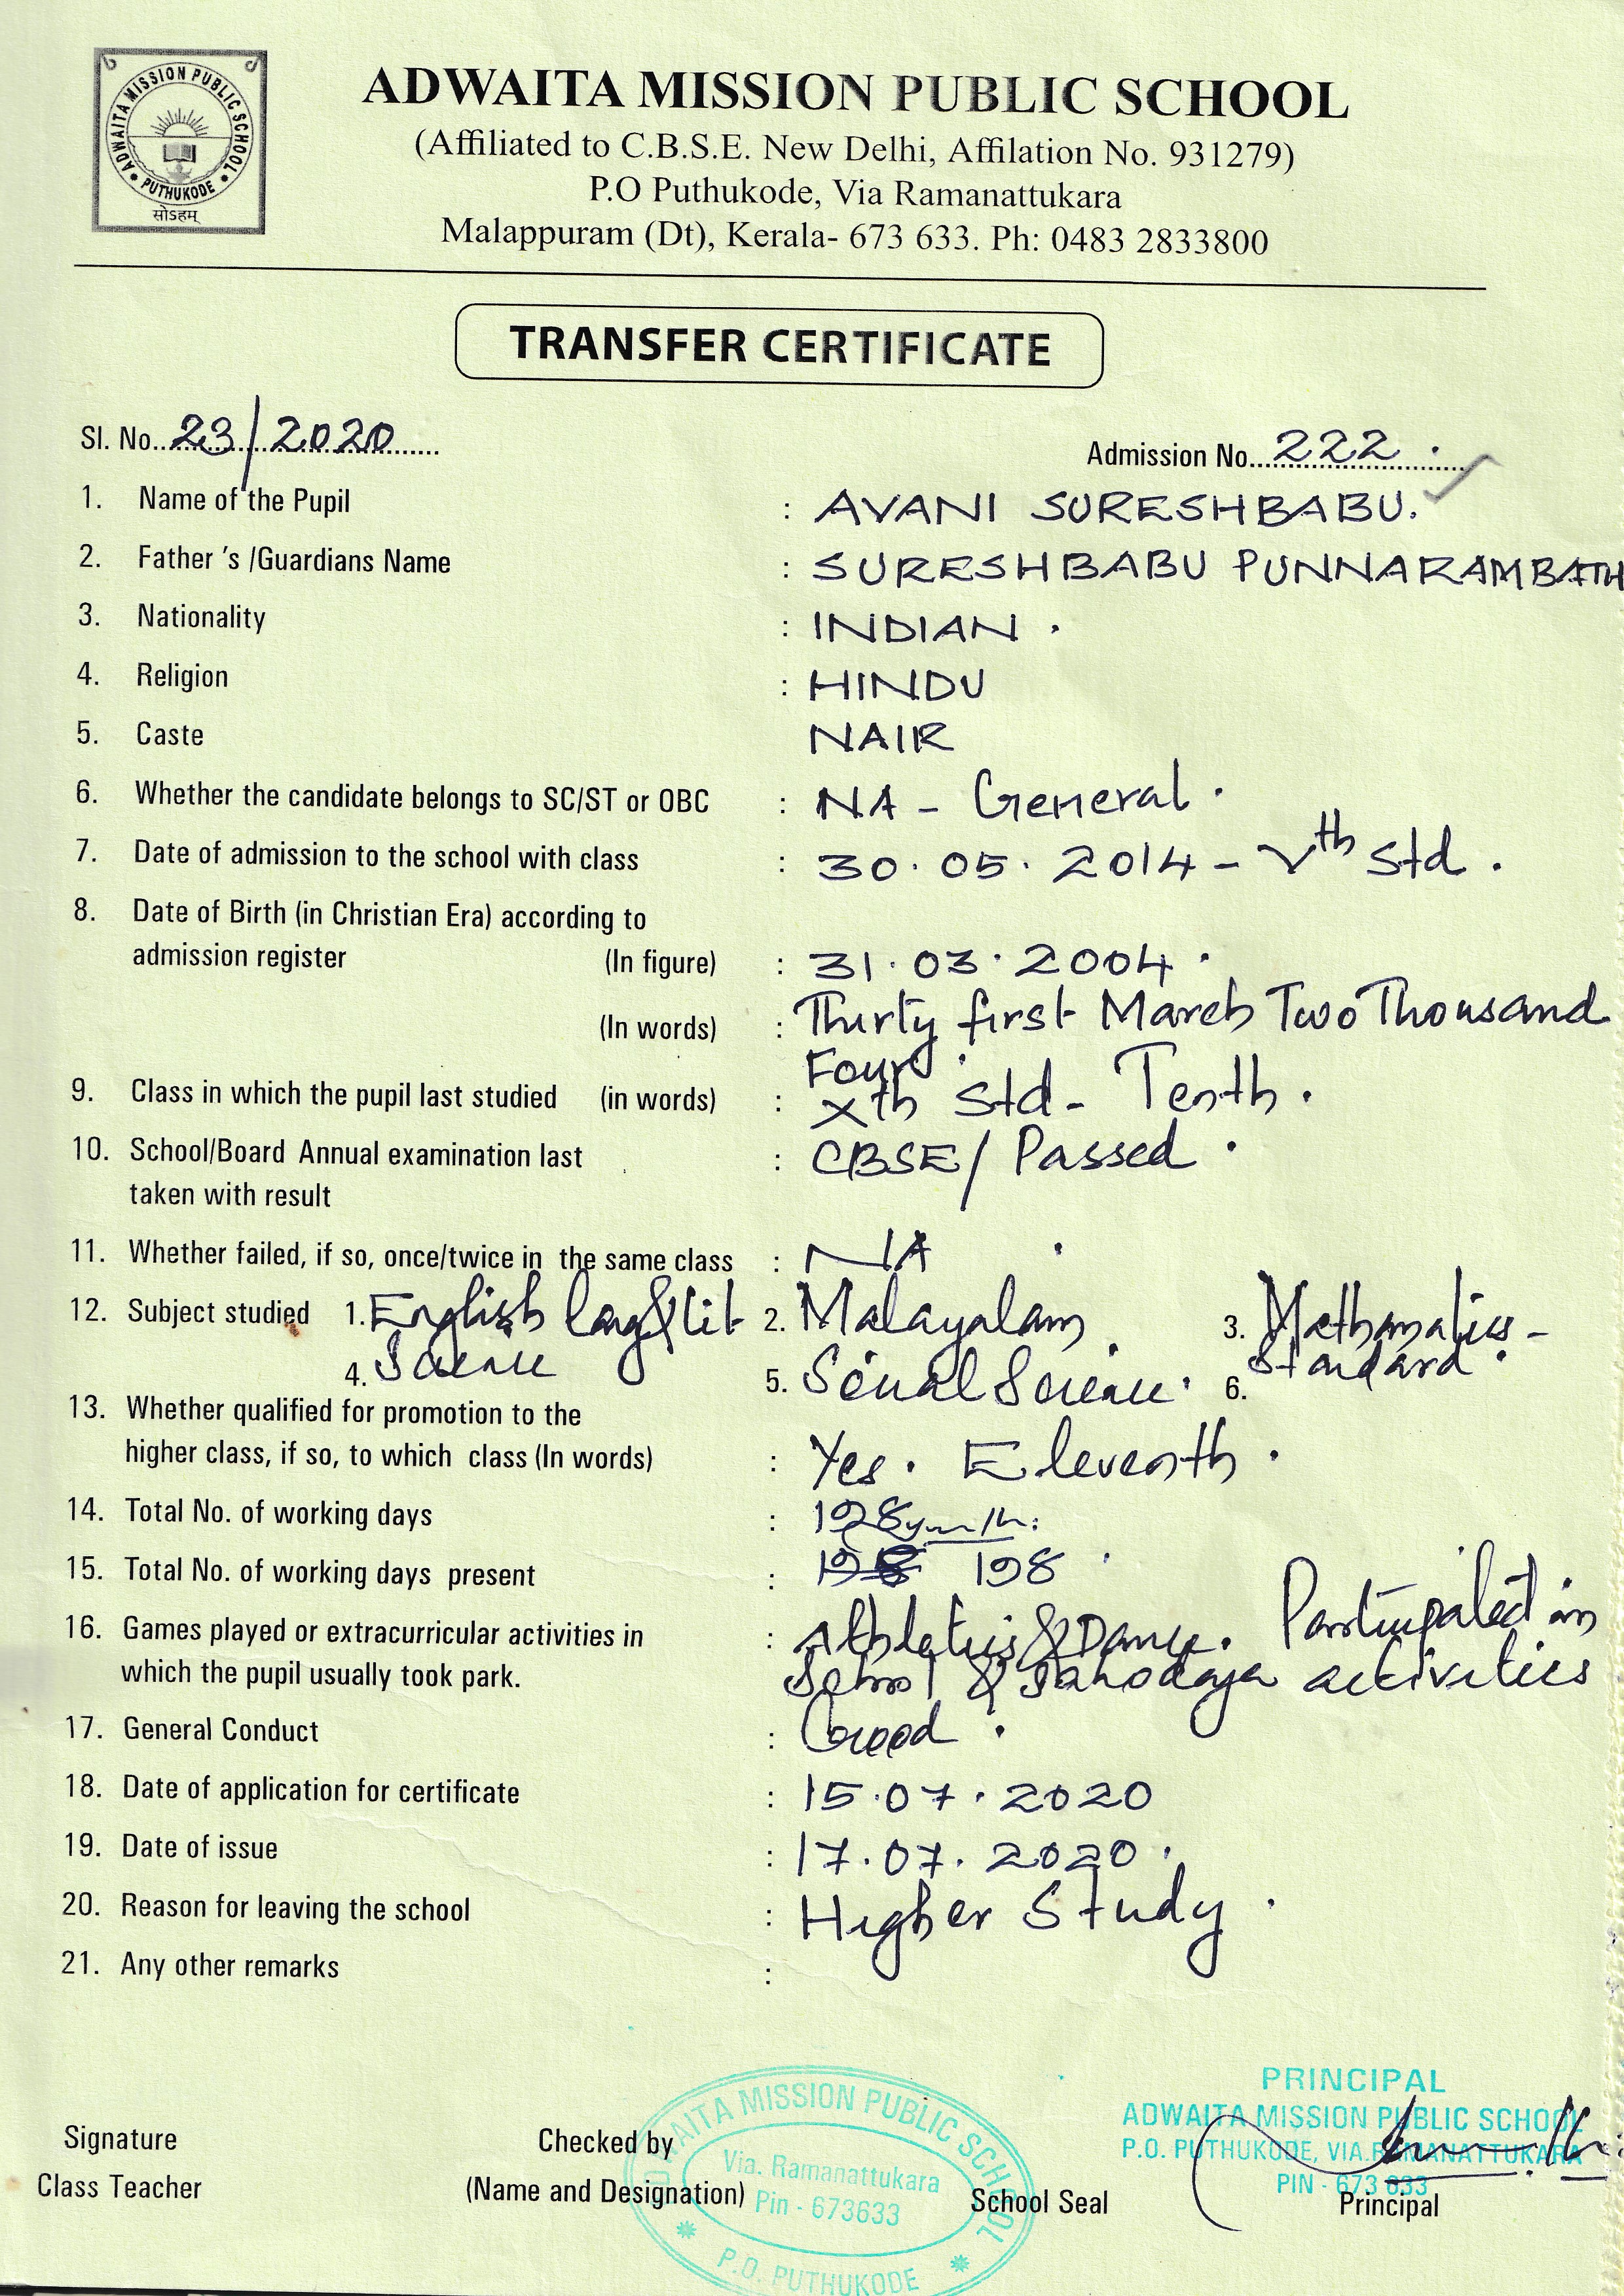 ADWAITA MISSION PUBLIC SCHOOL
PUTHUKODE
सोऽहम्
ADWAITA MISSION PUBLIC SCHOOL
(Affiliated to C.B.S.E. New Delhi, Affilation No. 931279)
P.O Puthukode, Via Ramanattukara
Malappuram (Dt), Kerala- 673 633. Ph: 0483 2833800
TRANSFER CERTIFICATE
Sl. No. 23/2020 Admission No. 222
1. Name of the Pupil : AVANI SURESHBABU.
2. Father 's /Guardians Name : SURESHBABU PUNNARAMBATH
3. Nationality : INDIAN .
4. Religion : HINDU
5. Caste NAIR
6. Whether the candidate belongs to SC/ST or OBC : NA - General .
7. Date of admission to the school with class : 30.05.2014 - Vth Std .
8. Date of Birth (in Christian Era) according to
admission register (In figure) : 31.03.2004 .
(In words) : Thirty first March Two Thousand
Four .
9. Class in which the pupil last studied (in words) : Xth Std - Tenth .
10. School/Board Annual examination last : CBSE/ Passed .
taken with result
11. Whether failed, if so, once/twice in the same class : NA .
12. Subject studied 1. English lang & lit 2. Malayalam 3. Mathematics -
Standard .
4. Science 5. Social Science . 6.
13. Whether qualified for promotion to the
higher class, if so, to which class (In words) : Yes . Eleventh .
14. Total No. of working days : 198
15. Total No. of working days present : 198
16. Games played or extracurricular activities in : Athletics & Dance. Participated in
which the pupil usually took park. School & Sahodaya activities
17. General Conduct : Good .
18. Date of application for certificate : 15.07.2020
19. Date of issue : 17.07.2020 .
20. Reason for leaving the school : Higher Study .
21. Any other remarks :
PRINCIPAL
ADWAITA MISSION PUBLIC SCHOOL
P.O. PUTHUKODE, VIA.RAMANATTUKARA
PIN - 673 633
ADWAITA MISSION PUBLIC SCHOOL
Via. Ramanattukara
Pin - 673633
P.O. PUTHUKODE
Signature Checked by
Class Teacher (Name and Designation) School Seal Principal